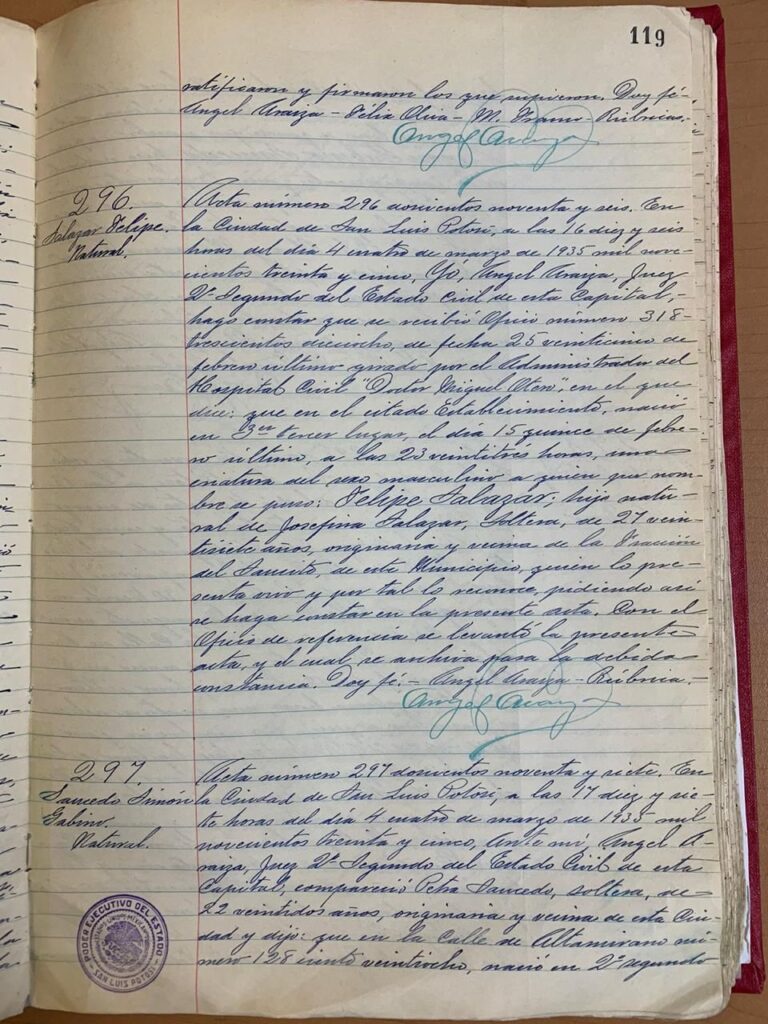 119
ratificaron y firmaron los que supieron. Doy fé-
Angel Araiza - Félix Oliva - M. Franco - Rúbricas.
Angel Araiza
296.
Salazar Felipe.
Natural.
Acta número 296 doscientos noventa y seis. En
la Ciudad de San Luis Potosí, a las 16 diez y seis
horas del día 4 cuatro de marzo de 1935 mil nove-
cientos treinta y cinco, Yó, Angel Araiza, Juez
2º Segundo del Estado Civil de esta Capital,-
hago constar que se recibió Oficio número 318-
trescientos dieciocho, de fecha 25 veinticinco de
febrero último girado por el Administrador del
Hospital Civil "Doctor Miguel Otero" en el que
dice: que en el citado Establecimiento, nació
en 3er tercer lugar, el día 15 quince de febre-
ro último, a las 23 veintitrés horas, una
criatura del sexo masculino a quien por nom-
bre se puso: Felipe Salazar; hijo natu-
ral de Josefina Salazar, soltera, de 27 vein-
tisiete años, originaria y vecina de la Fracción
del Saucito, de este Municipio, quien lo pre-
senta vivo y por tal lo reconoce, pidiendo así
se haga constar en la presente acta. Con el
Oficio de referencia se levantó la presente
acta, y el cual se archiva para la debida
constancia. Doy fé.- Angel Araiza - Rúbrica.-
Angel Araiza
297.
Saucedo Simón
Gabino.
Natural.
Acta número 297 doscientos noventa y siete. En
la Ciudad de San Luis Potosí, a las 17 diez y sie-
te horas del día 4 cuatro de marzo de 1935 mil
novecientos treinta y cinco, ante mí, Angel A-
raiza, Juez 2º Segundo del Estado Civil de esta
Capital, compareció Petra Saucedo, soltera, de
22 veintidos años, originaria y vecina de esta Ciu-
dad y dijo: que en la Calle de Altamirano nú-
mero 128 ciento veintiocho, nació en 2º segundo
PODER EJECUTIVO DEL ESTADO
ESTADOS UNIDOS MEXICANOS
SAN LUIS POTOSI